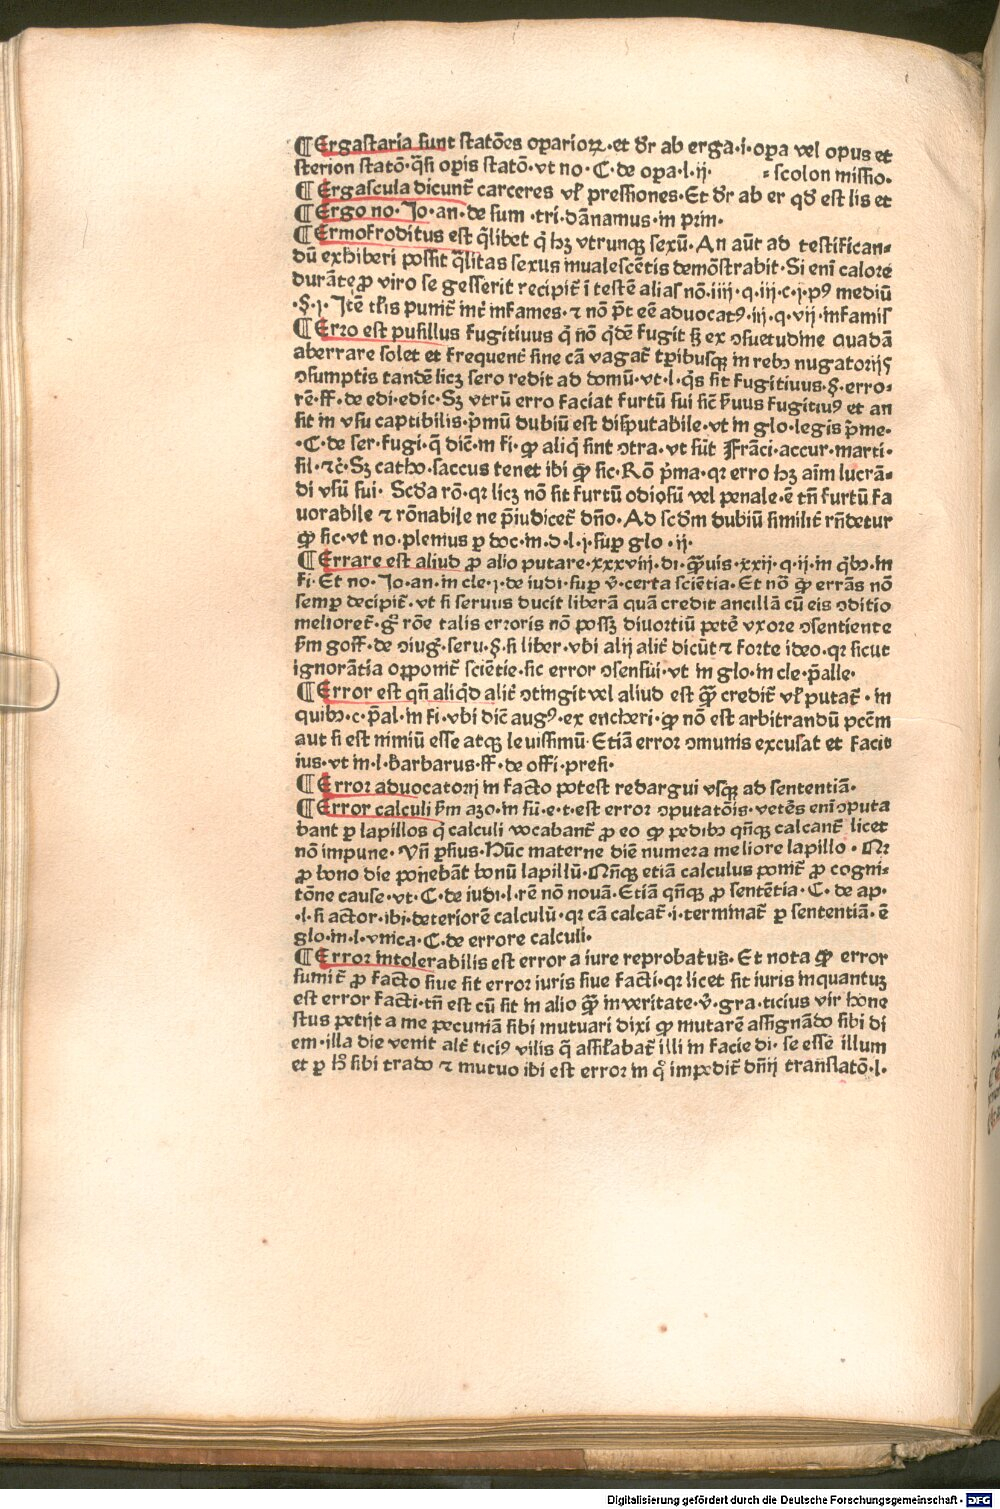 ¶Ergastaria sunt statōes oꝑarioꝝ·et dr̄ ab erga·i·oꝑa vel opus et
sterion statō·q̄si oꝑis statō·vt no·C·de oꝑa·l·ij· ⸗scolon missio·
¶Ergascula dicunt̄ carceres vl̓ pressiones·Et dr̄ ab er qd̄ est lis et
¶Ergo no·Jo·an·de sum·tri·dānamus·in prin·
¶Ermofroditus est q̄libet q̇ hꝫ vtrunqꝫ sexū·An aūt ad testifican⸗
dū exhiberi possit q̄litas sexus inualescētis demōstrabit·Si enī calore
durāte ꝓ viro se gesserit recipit̄ ī testē alias nō·iiij·q·iij·c·j·pꝰ mediū
·§·j·Itē tl̓is punit̄ int̄ infames·⁊ nō pt̄ eē aduocatꝰ·iij·q·vij·infamis
¶Erro est pusillus fugitiuus q̇ nō qdē fugit sꝫ ex ꝯsuetudine quadā
aberrare solet et frequent̄ sine cā vagat̄ tꝑibusqꝫ in rebꝰ nugatorijs
ꝯsumptis tandē licꝫ sero redit ad domū·vt·l·q̇s sit fugitiuus·§·erro⸗
rē·ff·de edi·edic·Sꝫ vtrū erro faciat furtū sui sic̄ ẜuus fugitiuꝰ et an
sit in vsu captibilis·p̄mū dubiū est disputabile·vt in glo·legis p̄me·
·C·de ser·fugi·q̄ dic̄·in fi·ꝙ aliq̇ sint ꝯtra·vt sūt Frāci·accur·marti·
sil·⁊c̄·Sꝫ catho·saccus tenet ibi ꝙ sic·Rō p̄ma·qr erro hꝫ aīm lucrā⸗
di vsū sui·Scd̄a rō·qr licꝫ nō sit furtū odiosū vel penale·ē tn̄ furtū fa
uorabile ⁊ rōnabile ne p̄iudicet̄ dn̄o·Ad scd̄m dubiū similit̄ rn̄detur
ꝙ sic·vt no·plenius ꝑ doc·in·d·l·j·suꝑ glo·ij·
¶Errare est aliud ꝓ alio putare·xxxviij·di·q̄uis·xxij·q·ij·in qbꝰ·in
fi·Et no·Jo·an·in cle·j·de iudi·suꝑ v̄·certa sciētia·Et nō ꝙ errās nō
semꝑ decipit̄·vt si seruus ducit liberā quā credit ancillā cū eis ꝯditio
melioret̄·g̊ rōe talis erroris nō possꝫ diuortiū petē vxore ꝯsentiente
ẜm goff·de ꝯiug̓·seru·§·si liber·vbi alij alit̄ dicūt ⁊ forte ideo·qr sicut
ignorātia oꝑponit̄ sciētie·sic error ꝯsensui·vt in glo·in cle·p̄alle·
¶Error est qn̄ aliqd alit̄ ꝯtingit vel aliud est q̄ credit̄ vl̓ putat̄·in
quibꝰ·c·p̄al·in fi·vbi dic̄ augꝰ·ex encheri·ꝙ nō est arbitrandū pc̄ēm
aut si est nimiū esse atqꝫ leuissimū·Etiā error ꝯmunis excusat et facit
ius·vt in·l·Barbarus·ff·de offi·presi·
¶Error aduocatorij in facto potest redargui vsqꝫ ad sententiā·
¶Error calculi ẜm azo·in sū·e·t·est error ꝯputatōis·veteēs enī ꝯputa
bant ꝑ lapillos q̇ calculi vocabant̄ ꝓ eo ꝙ pedibꝰ qn̄qꝫ calcant̄ licet
nō impune·Vn̄ ꝑsius·Hūc materne diē numera meliore lapillo·Nr
ꝓ bono die ponebāt bonū lapillū·Nn̄qꝫ etiā calculus ponit̄ ꝓ cogni⸗
tōne cause·vt·C·de iudi·l·rē nō nouā·Etiā qn̄qꝫ ꝓ sentētia·C·de ap·
·l·si actor·ibi·deteriorē calculū·qr cā calcat̄·i·terminat̄ ꝑ sententiā·ē
glo·in·l·vnica·C·de errore calculi·
¶Error intolerabilis est error a iure reprobatus·Et nota ꝙ error
sumit̄ ꝓ facto siue sit error iuris siue facti·qr licet sit iuris inquantuꝫ
est error facti·tn̄ est cū sit in alio q̄ in veritate·v̄·gra·ticius vir hone
stus petijt a me pecuniā sibi mutuari dixi ꝙ mutarē assignādo sibi di
em·illa die venit alt̄ ticiꝰ vilis q̄ assil̓abat̄ illi in facie di·se esse illum
et ꝑ hͦ sibi trado ⁊ mutuo ibi est error in qͦ impedit̄ dn̄ij translatō·l·
Digitalisierung gefördert durch die Deutsche Forschungsgemeinschaft - DFG